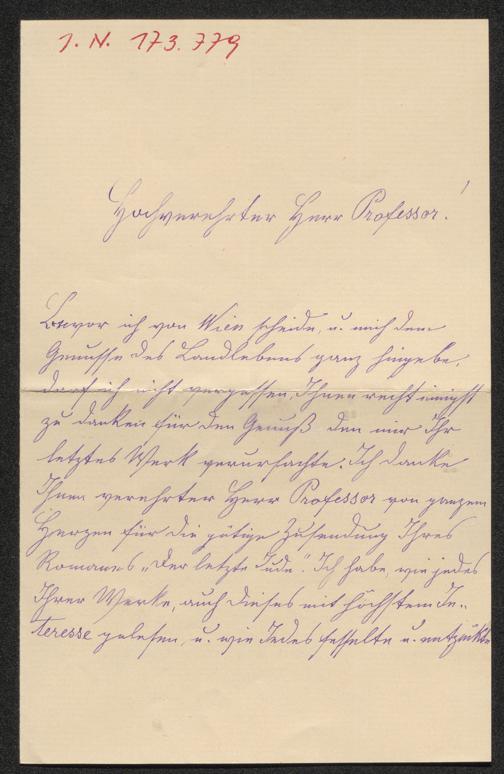 J. N. 173.779
Hochverehrter Herr Professor!
Bevor ich von Wien scheide, u. mich dem
Genusse des Landlebens ganz hingebe,
darf ich nicht vergessen, Ihnen recht innigst
zu danken für den Genuß den mir Ihr
letztes Werk verursachte. Ich danke
Ihnen verehrter Herr Professor von ganzem
Herzen für die gütige Zusendung Ihres
Romanes „Der letzte Jude". Ich habe, wie jedes
Ihrer Werke, auch dieses mit höchstem In-
teresse gelesen, u. wie Jedes fesselte u. entzückte